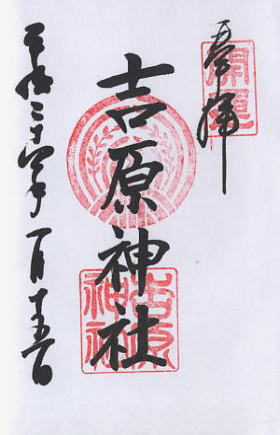 奉拝
開運
吉原神社
吉原神社
平成二十四年一月十五日